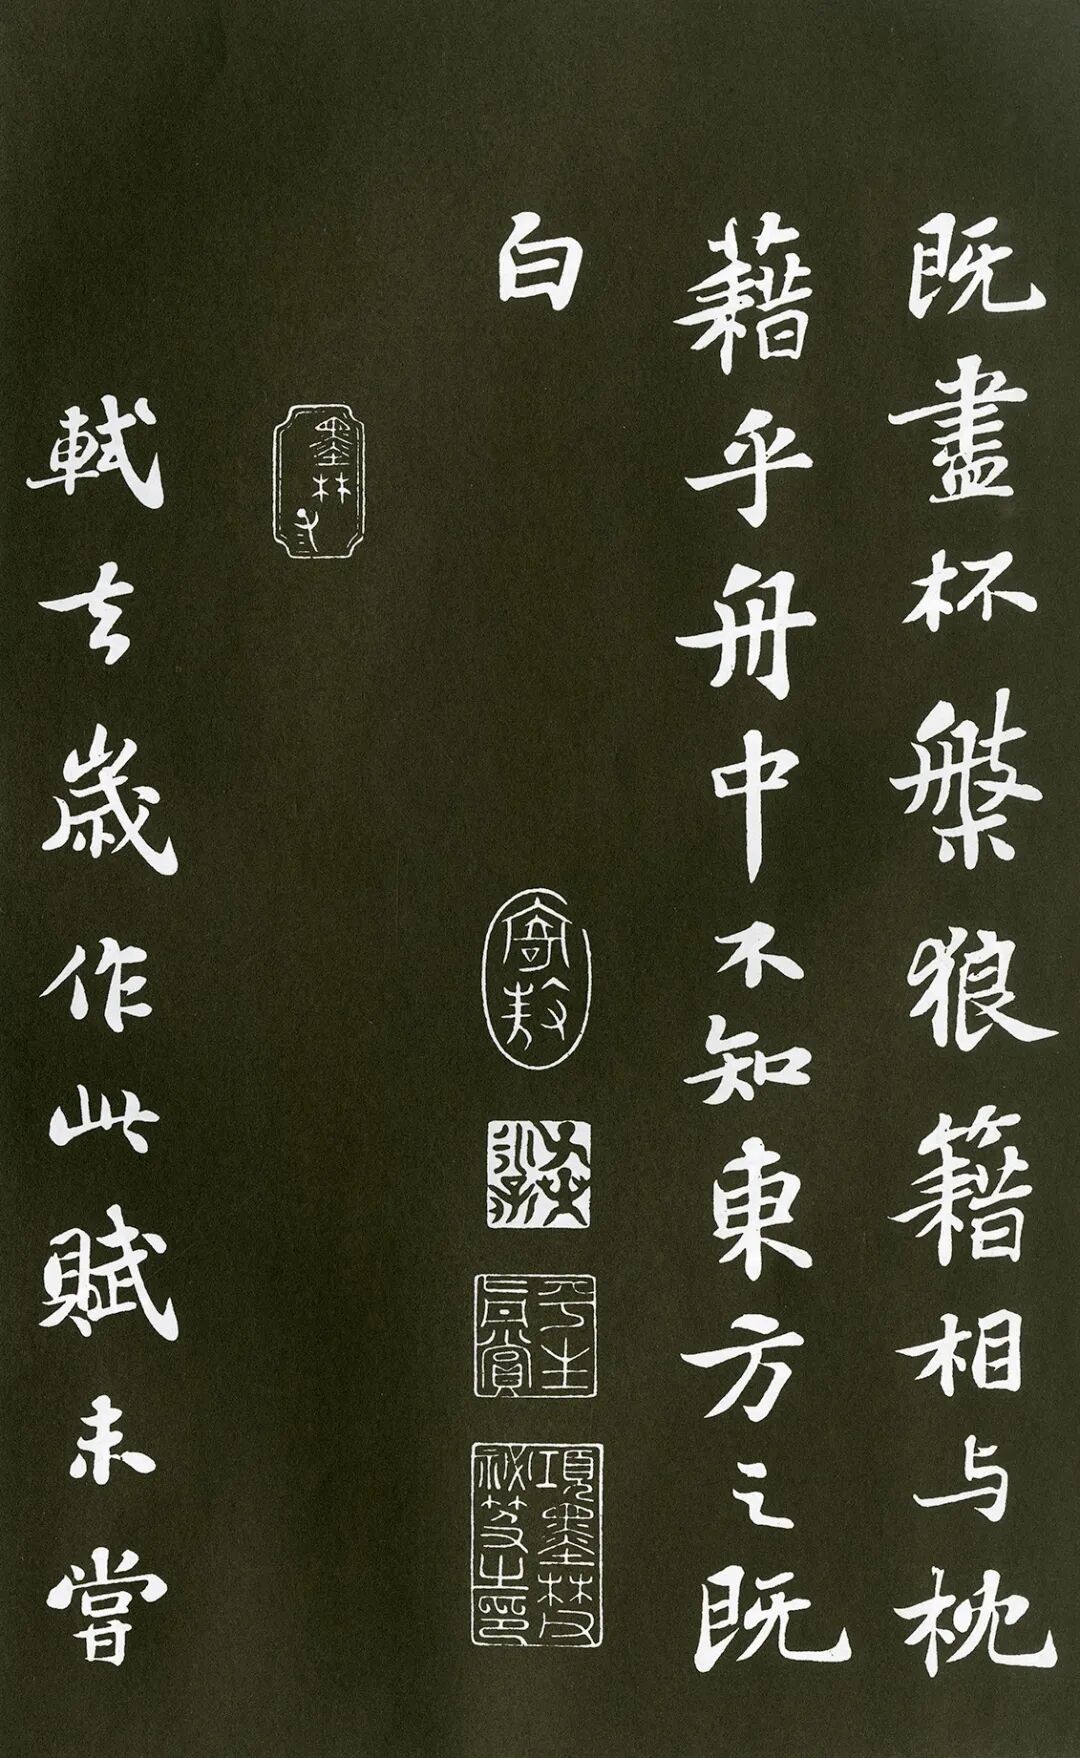 既盡杯槃狼籍相与枕
藉乎舟中不知東方之既
白
寄敖
平生真賞
項墨林父祕笈之印
墨林子
軾去歲作此賦未嘗